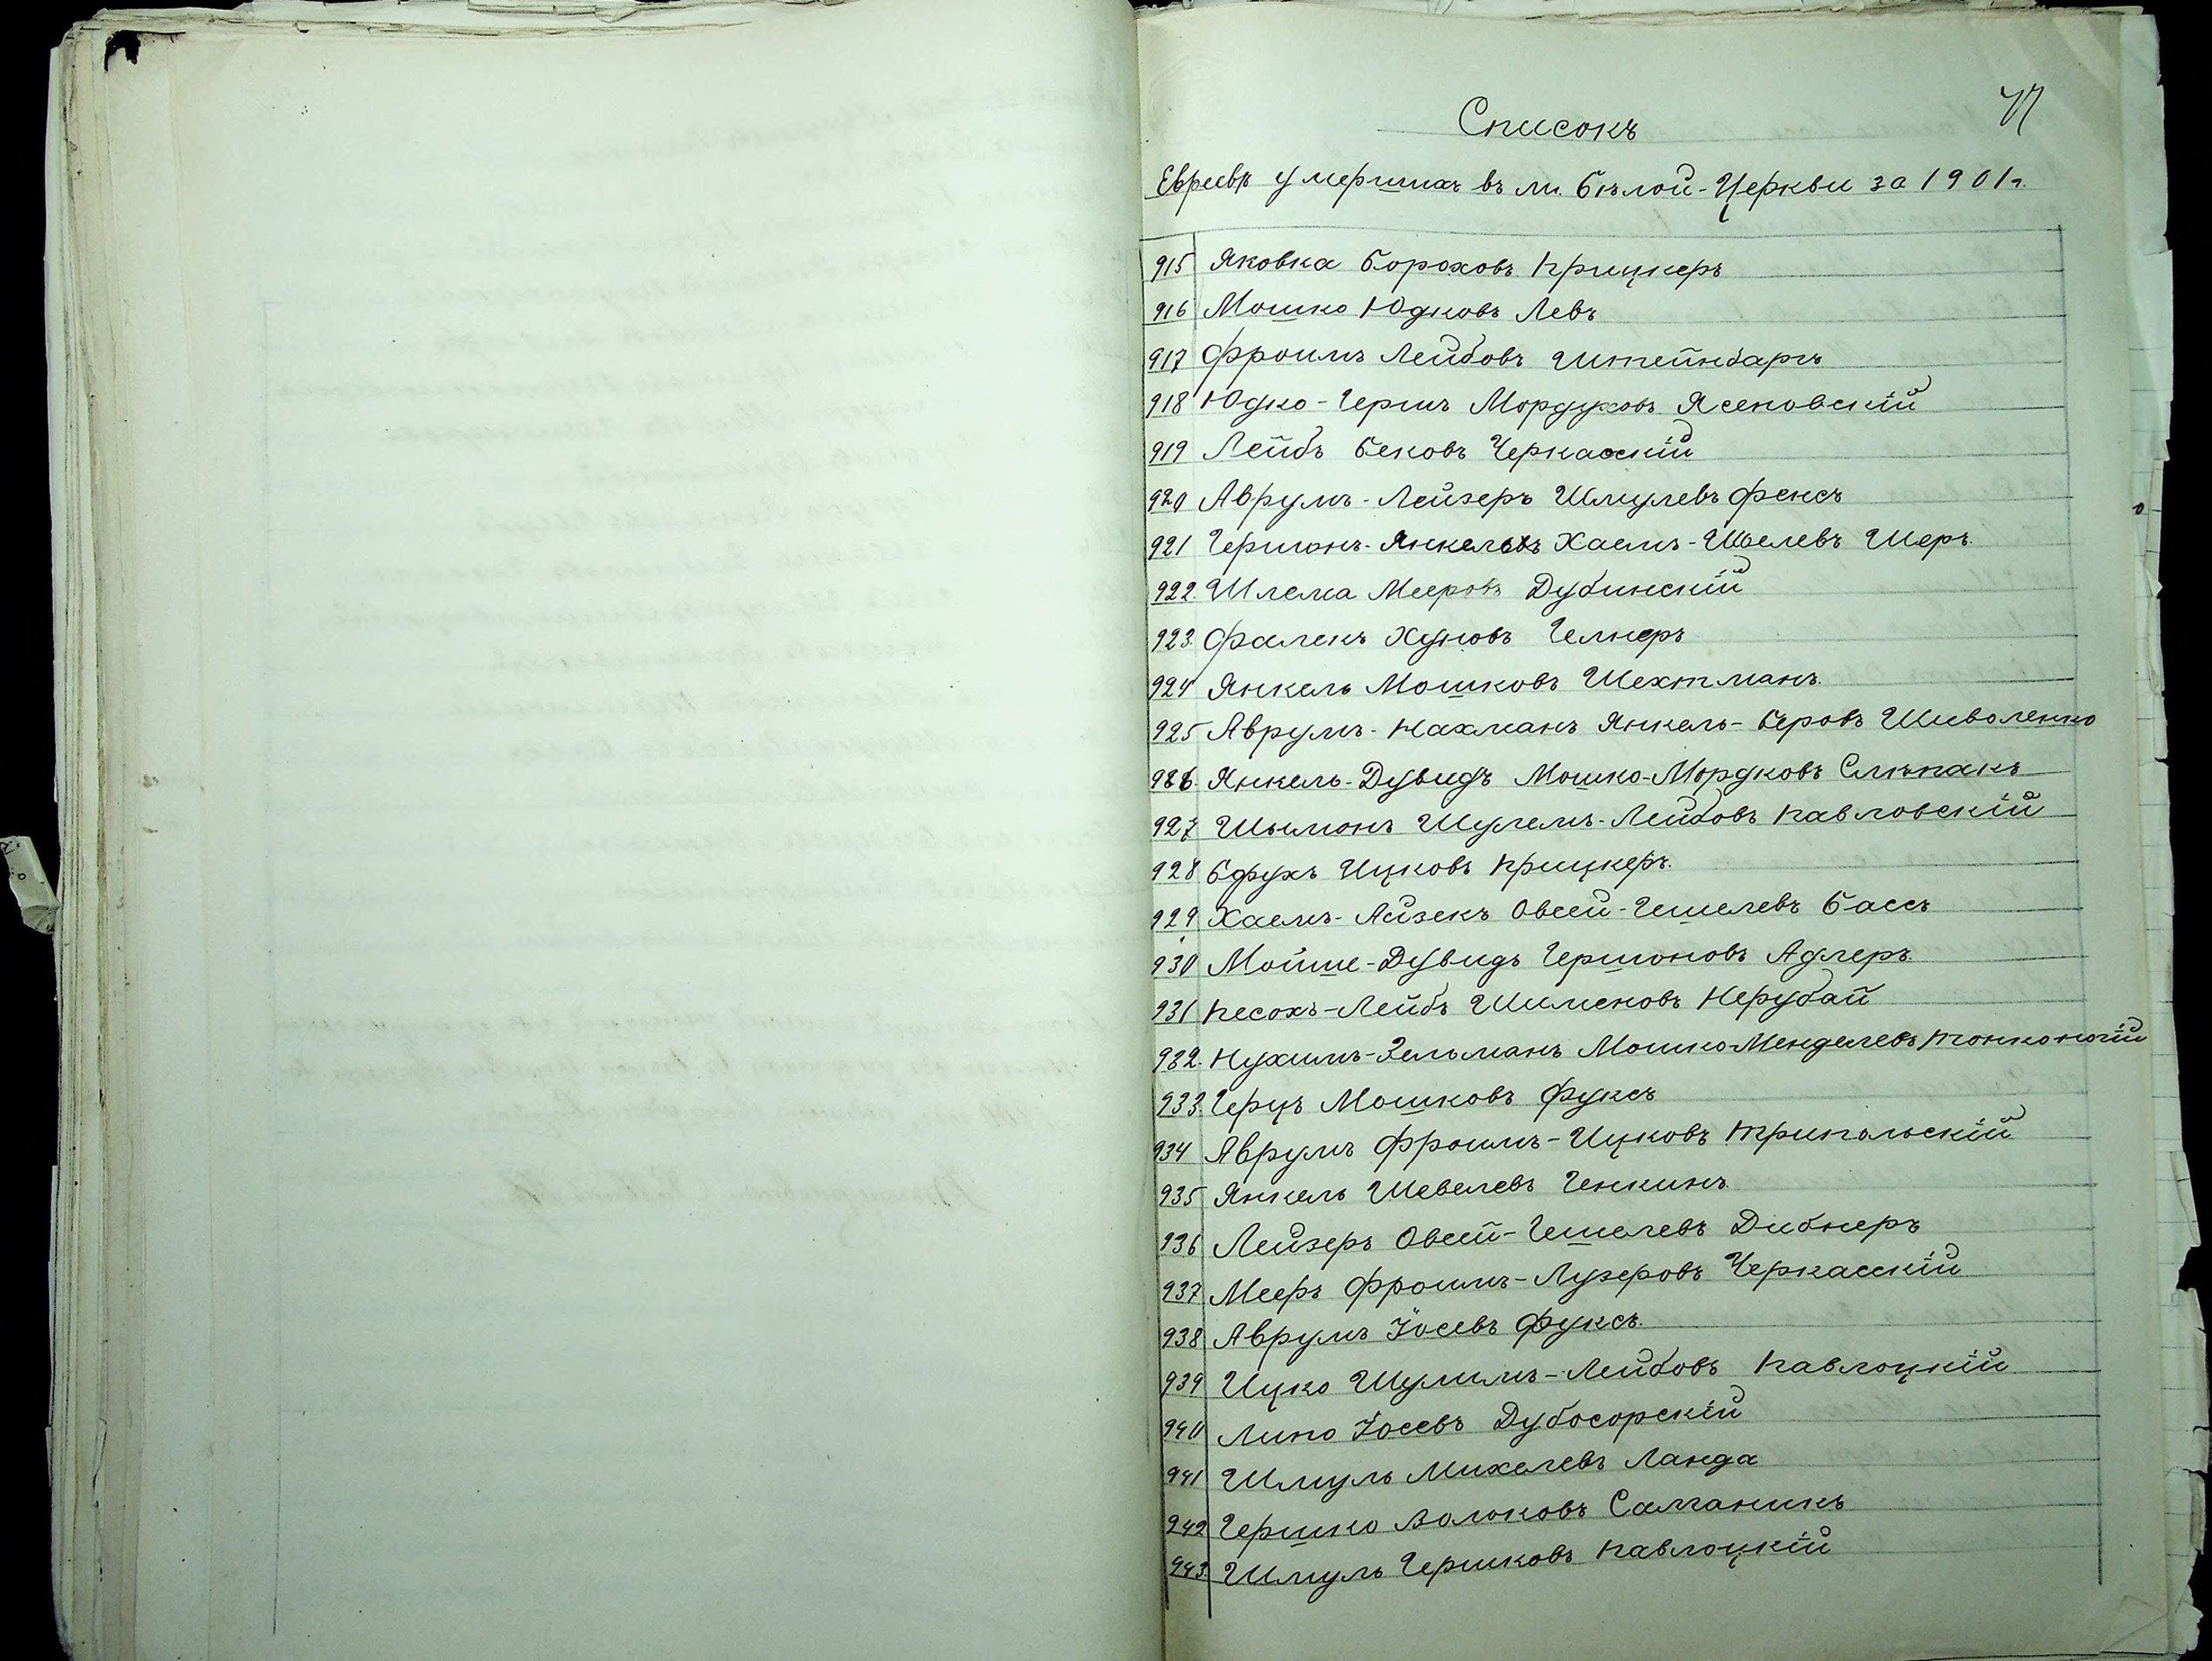 77
Списокъ
Евреевъ умершихъ въ м. Бѣлой-Церкви за 1901г.
915 Яковка Бороховъ Прицкеръ
916 Мошко Юдковъ Левъ
917 Фроимъ Лейбовъ Штейнбаргъ
918 Юдко-Гершъ Мордуховъ Ясеновскій
919 Лейбъ Бековъ Черкасскій
920 Аврумъ-Лейзеръ Шмулевъ Фексъ
921 Гершонъ-Янкель Хаемъ-Шлелевъ Шеръ
922. Шлема Мееровъ Дубинскій
923. Фалекъ Хуновъ Гелнеръ
924 Янкель Мошковъ Шехтманъ.
925 Аврумъ-Нахманъ Янкель-Беровъ Шиволенко
986. Янкель-Дувидъ Мошко-Мордковъ Слѣпакъ
927 Шымонъ Шулемъ-Лейбовъ Павловскій
928 Борухъ Ицковъ Прицкеръ.
929 Хаемъ-Айзекъ Овсей-Гешелевъ Бассъ
930 Мойше-Дувидъ Гершоновъ Адлеръ.
931 Песохъ-Лейбъ Шименовъ Нерубай
932. Нухимъ-Зельманъ Мошко-Менделевъ Тонконогій
933. Герцъ Мошковъ Фуксъ
934 Аврумъ Фроимъ-Ицковъ Трипольскій
935 Янкель Шевелевъ Генкинъ
936 Лейзеръ Овсей-Гешелевъ Дибнеръ
937 Мееръ Фроимъ-Лузеровъ Черкасскій
938 Аврумъ Іосевъ Фуксъ.
939 Ицко Шулимъ-Лейбовъ Павлоцкій
940 Липо Іосевъ Дубосорскій
941 Шмуль Михелевъ Ланда
942 Гершко Волковъ Салганикъ
943. Шмуль Гершковъ Павлоцкій